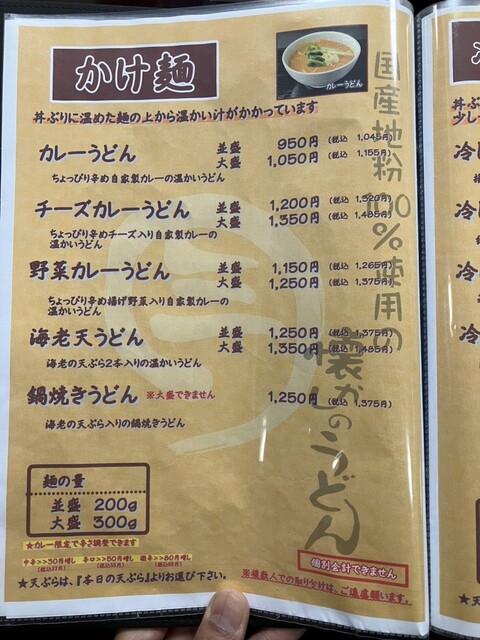 かけ麺
カレーうどん
丼ぶりに温めた麺の上から温かい汁がかかっています
カレーうどん 並盛 950円 (税込 1,045円)
大盛 1,050円 (税込 1,155円)
ちょっぴり辛め自家製カレーの温かいうどん
チーズカレーうどん 並盛 1,200円 (税込 1,320円)
大盛 1,350円 (税込 1,485円)
ちょっぴり辛めチーズ入り自家製カレーの
温かいうどん
野菜カレーうどん 並盛 1,150円 (税込 1,265円)
大盛 1,250円 (税込 1,375円)
ちょっぴり辛め揚げ野菜入り自家製カレーの
温かいうどん
海老天うどん 並盛 1,250円 (税込 1,375円)
大盛 1,350円 (税込 1,485円)
海老の天ぷら2本入りの温かいうどん
鍋焼きうどん ※大盛できません 1,250円 (税込 1,375円)
海老の天ぷら入りの鍋焼きうどん
国産地粉100%使用の
懐かしのうどん
麺の量
並盛 200g
大盛 300g
★カレー限定で辛さ調整できます
中辛>>30円増し 辛口>>50円増し 激辛>>80円増し
(税込33円) (税込55円) (税込88円)
★天ぷらは、『本日の天ぷら』よりお選び下さい。
個別会計できません
※複数人での取り分けは、ご遠慮願います。
丼ぶ
少し
冷し
冷
冷
冷